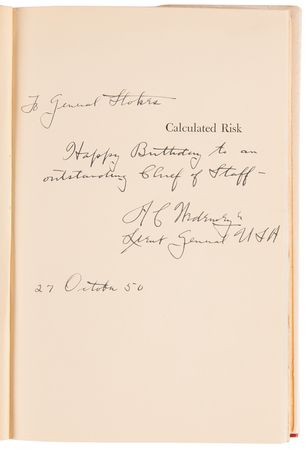 To General Stokes
Calculated Risk
Happy Birthday to an
outstanding Chief of Staff –
A C Wedemeyer
Lieut General USA
27 October 50